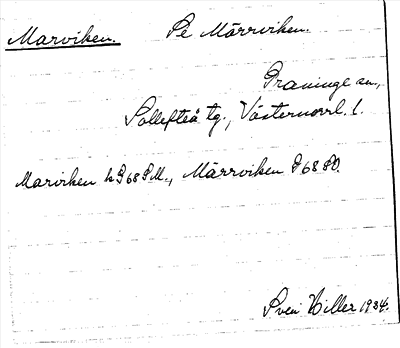 Marviken. Se Märrviken.
Graninge sn.,
Sollefteå tg., Västernorrl. l.
Marviken h G 68 SM., Märrviken G 68 SO.
Sven Hiller 1934.